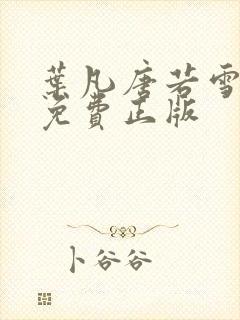 葉凡唐若雪
免費正版
卜谷谷